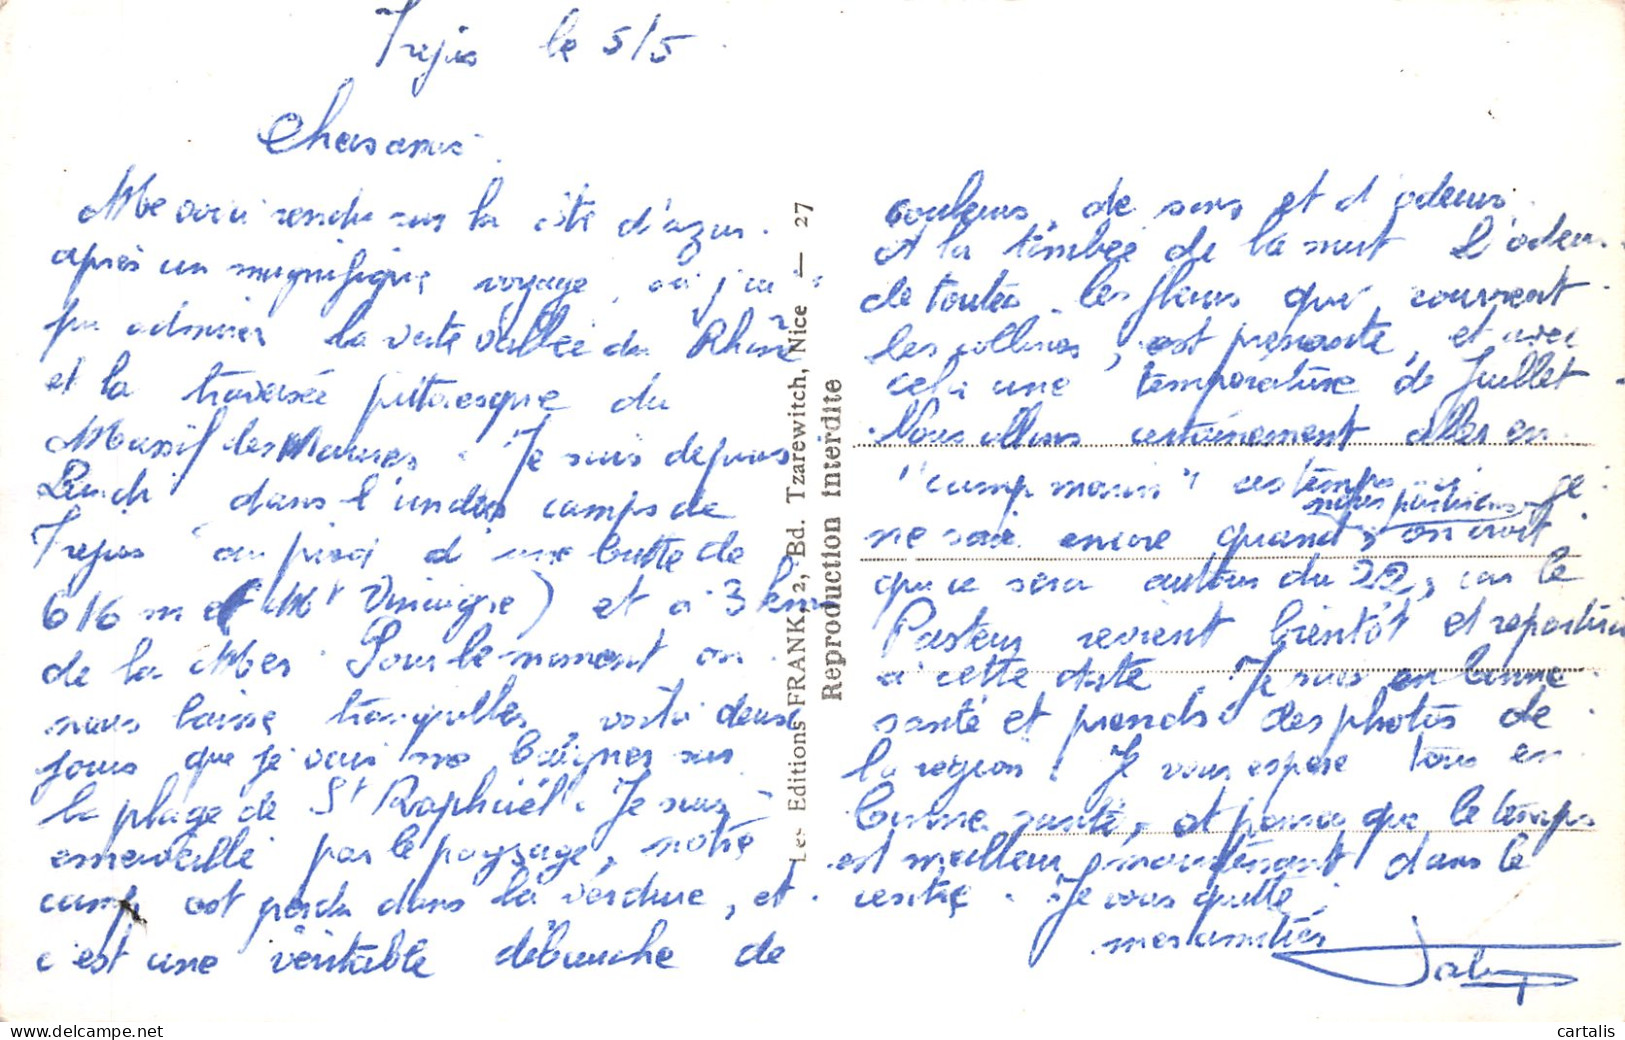 Frejus le 5/5
Chers amis.
Me voici rendu sur la côte d'azur.
après un magnifique voyage, où j'ai
pu admirer la verte vallée du Rhône
et la traversée pittoresque du
Massif des Maures. Je suis depuis
Lundi dans l'un des camps de
Frejus au pied d'une butte de
616 m (Mt Vinaigre) et à 3 km
de la Mer. Pour le moment on
nous laisse tranquilles, voilà deux
jours que je vais me baigner sur
la plage de St Raphaël. Je suis
emerveillé par le paysage, notre
camp est perdu dans la verdure, et
c'est une véritable débauche de
couleurs, de sons et d'odeurs.
A la tombée de la nuit l'odeur
de toutes les fleurs qui couvrent
les collines, est prenante, et avec
cela une température de Juillet
Nous allons certainement aller en
"camp marin" ces temps ci Je
ne sais encore quand nous partirons, on croit
que ce sera autour du 22, car le
Pasteur revient bientôt et repartira
à cette date. Je suis en bonne
santé et prends des photos de
la region. Je vous espère tous en
bonne santé, et pense que le temps
est meilleur maintenant dans le
centre. Je vous quitte,
mes amitiés
Les Editions FRANK, 2, Bd. Tzarewitch, Nice — 27
Reproduction interdite
cartalis